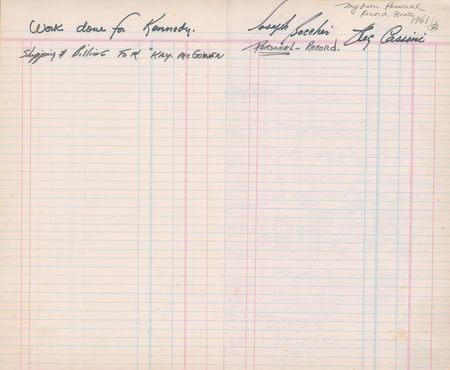 Work done for Kennedy.
Shipping & Billing FOR "KAY. McGOWEN
Joseph Boccheir
PERSONAL - RECORD.
My Own Personal
Record Book
1961
Oleg Cassini